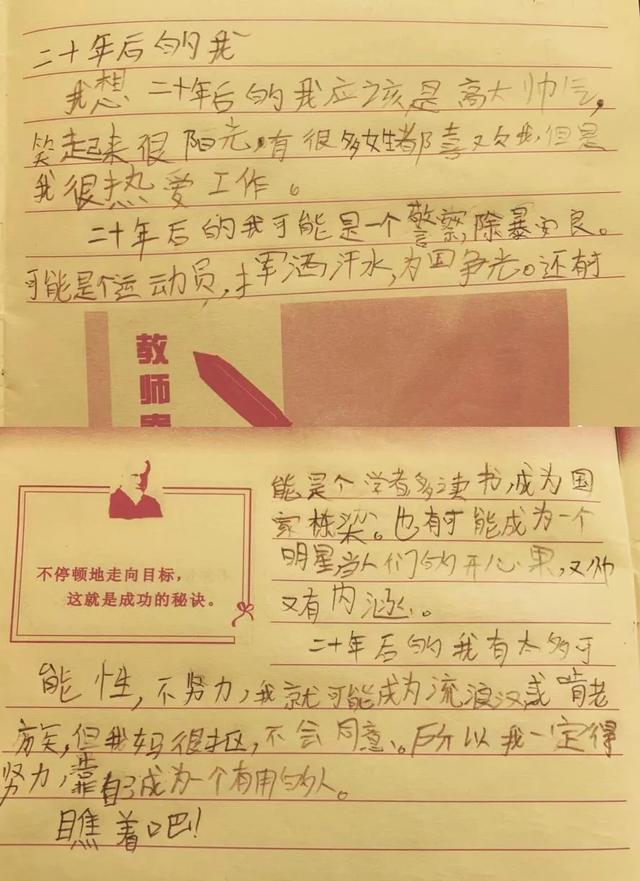 二十年后的我
我想二十年后的我应该是高大帅气,
笑起来很阳光,有很多女生都喜欢我,但是
我很热爱工作。
二十年后的我可能是一个警察,除暴安良。
可能是个运动员,挥洒汗水,为国争光。还有可
教师
能是个学者多读书,成为国
家栋梁。也有可能成为一个
明星当人们的开心果,又帅
又有内涵。
不停顿地走向目标,
这就是成功的秘诀。
二十年后的我有太多可
能性,不努力,我就可能成为流浪汉或啃老
族,但我妈很抠,不会同意。所以我一定得
努力,靠自己成为一个有用的人。
瞧着吧!